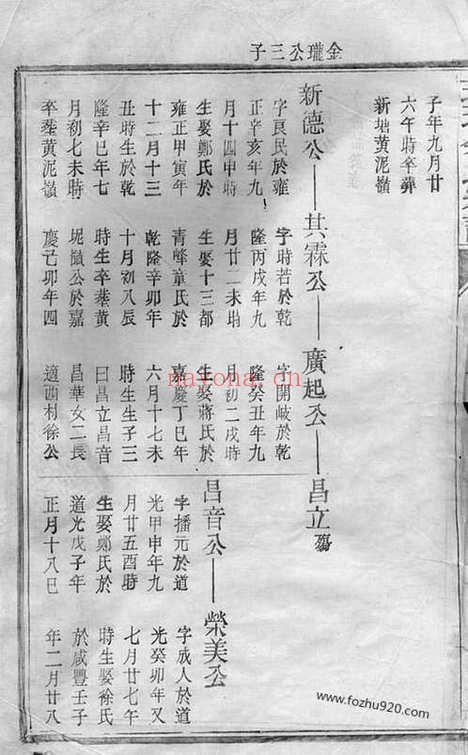 金瓏公三子
子年九月廿
六午時卒葬
新塘黄泥嶺
新德公——其霖公——廣起公——昌立殤
字良民於雍
正辛亥年九
月十四申時
生娶鄭氏於
雍正甲寅年
十二月十三
丑時生於乾
隆辛巳年七
月初七未時
卒葬黄泥嶺
字時若於乾
隆丙戌年九
月廿二未時
生娶十三都
青峰童氏於
乾隆辛卯年
十月初八辰
時生卒葬黄
坭嶺公於嘉
慶己卯年四
字開岐於乾
隆癸丑年九
月初二戌時
生娶蔣氏於
嘉慶丁巳年
六月十七未
時生生子三
曰昌立昌音
昌華女二長
適西村徐公
昌音公——榮美公
字播元於道
光甲申年九
月廿五酉時
生娶鄭氏於
道光戊子年
正月十八巳
字成人於道
光癸卯年又
七月廿七午
時生娶徐氏
於咸豐壬子
年二月廿八
nayona.cn
www.fozhu920.com